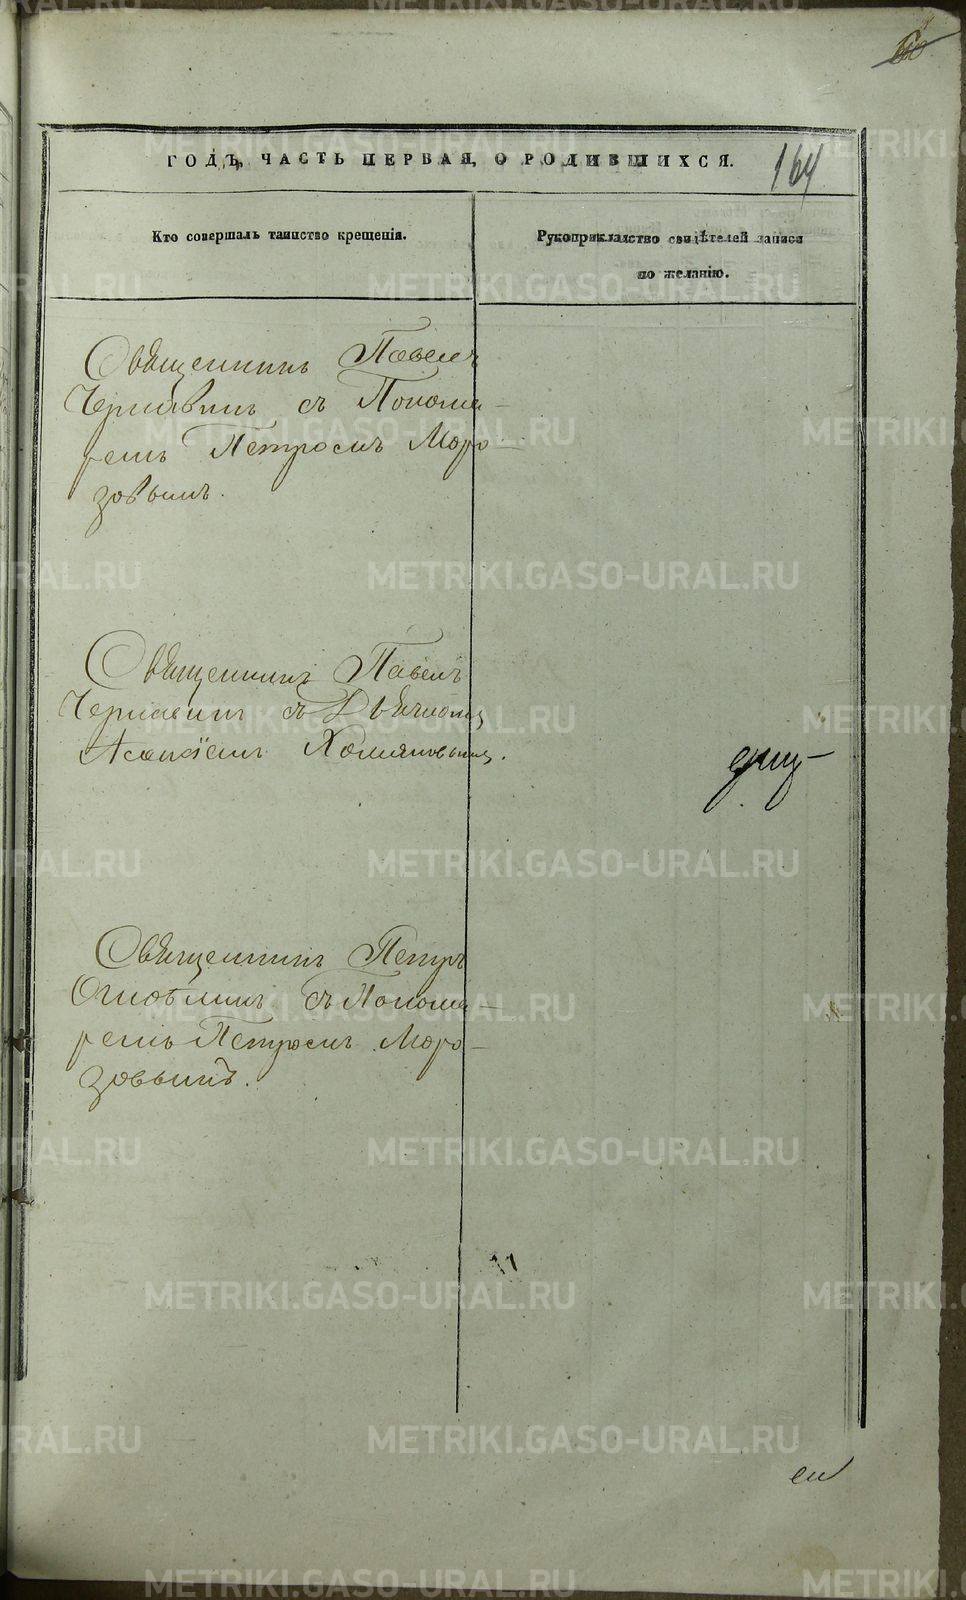 164
ГОДЪ, ЧАСТЬ ПЕРВАЯ, О РОДИВШИХСЯ.
Кто совершалъ таинство крещенія.
Рукоприкладство свидѣтелей записи
по желанію.
Священникъ Павелъ
Чернавинъ съ Понома-
ремъ Петромъ Моро-
зовымъ.
Священникъ Павелъ
Чернавинъ съ Дьячкомъ
Хомяковымъ.
Священникъ Петръ
съ Понома-
ремъ Петромъ Моро-
зовымъ.
METRIKI.GASO-URAL.RU